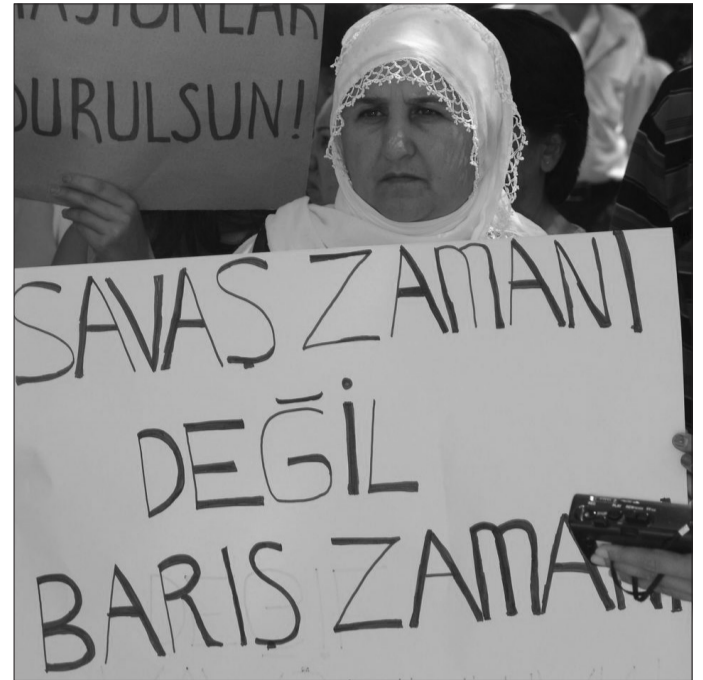 DURULSUN!
SAVAŞ ZAMANI
DEĞİL
BARIŞ ZAMANI